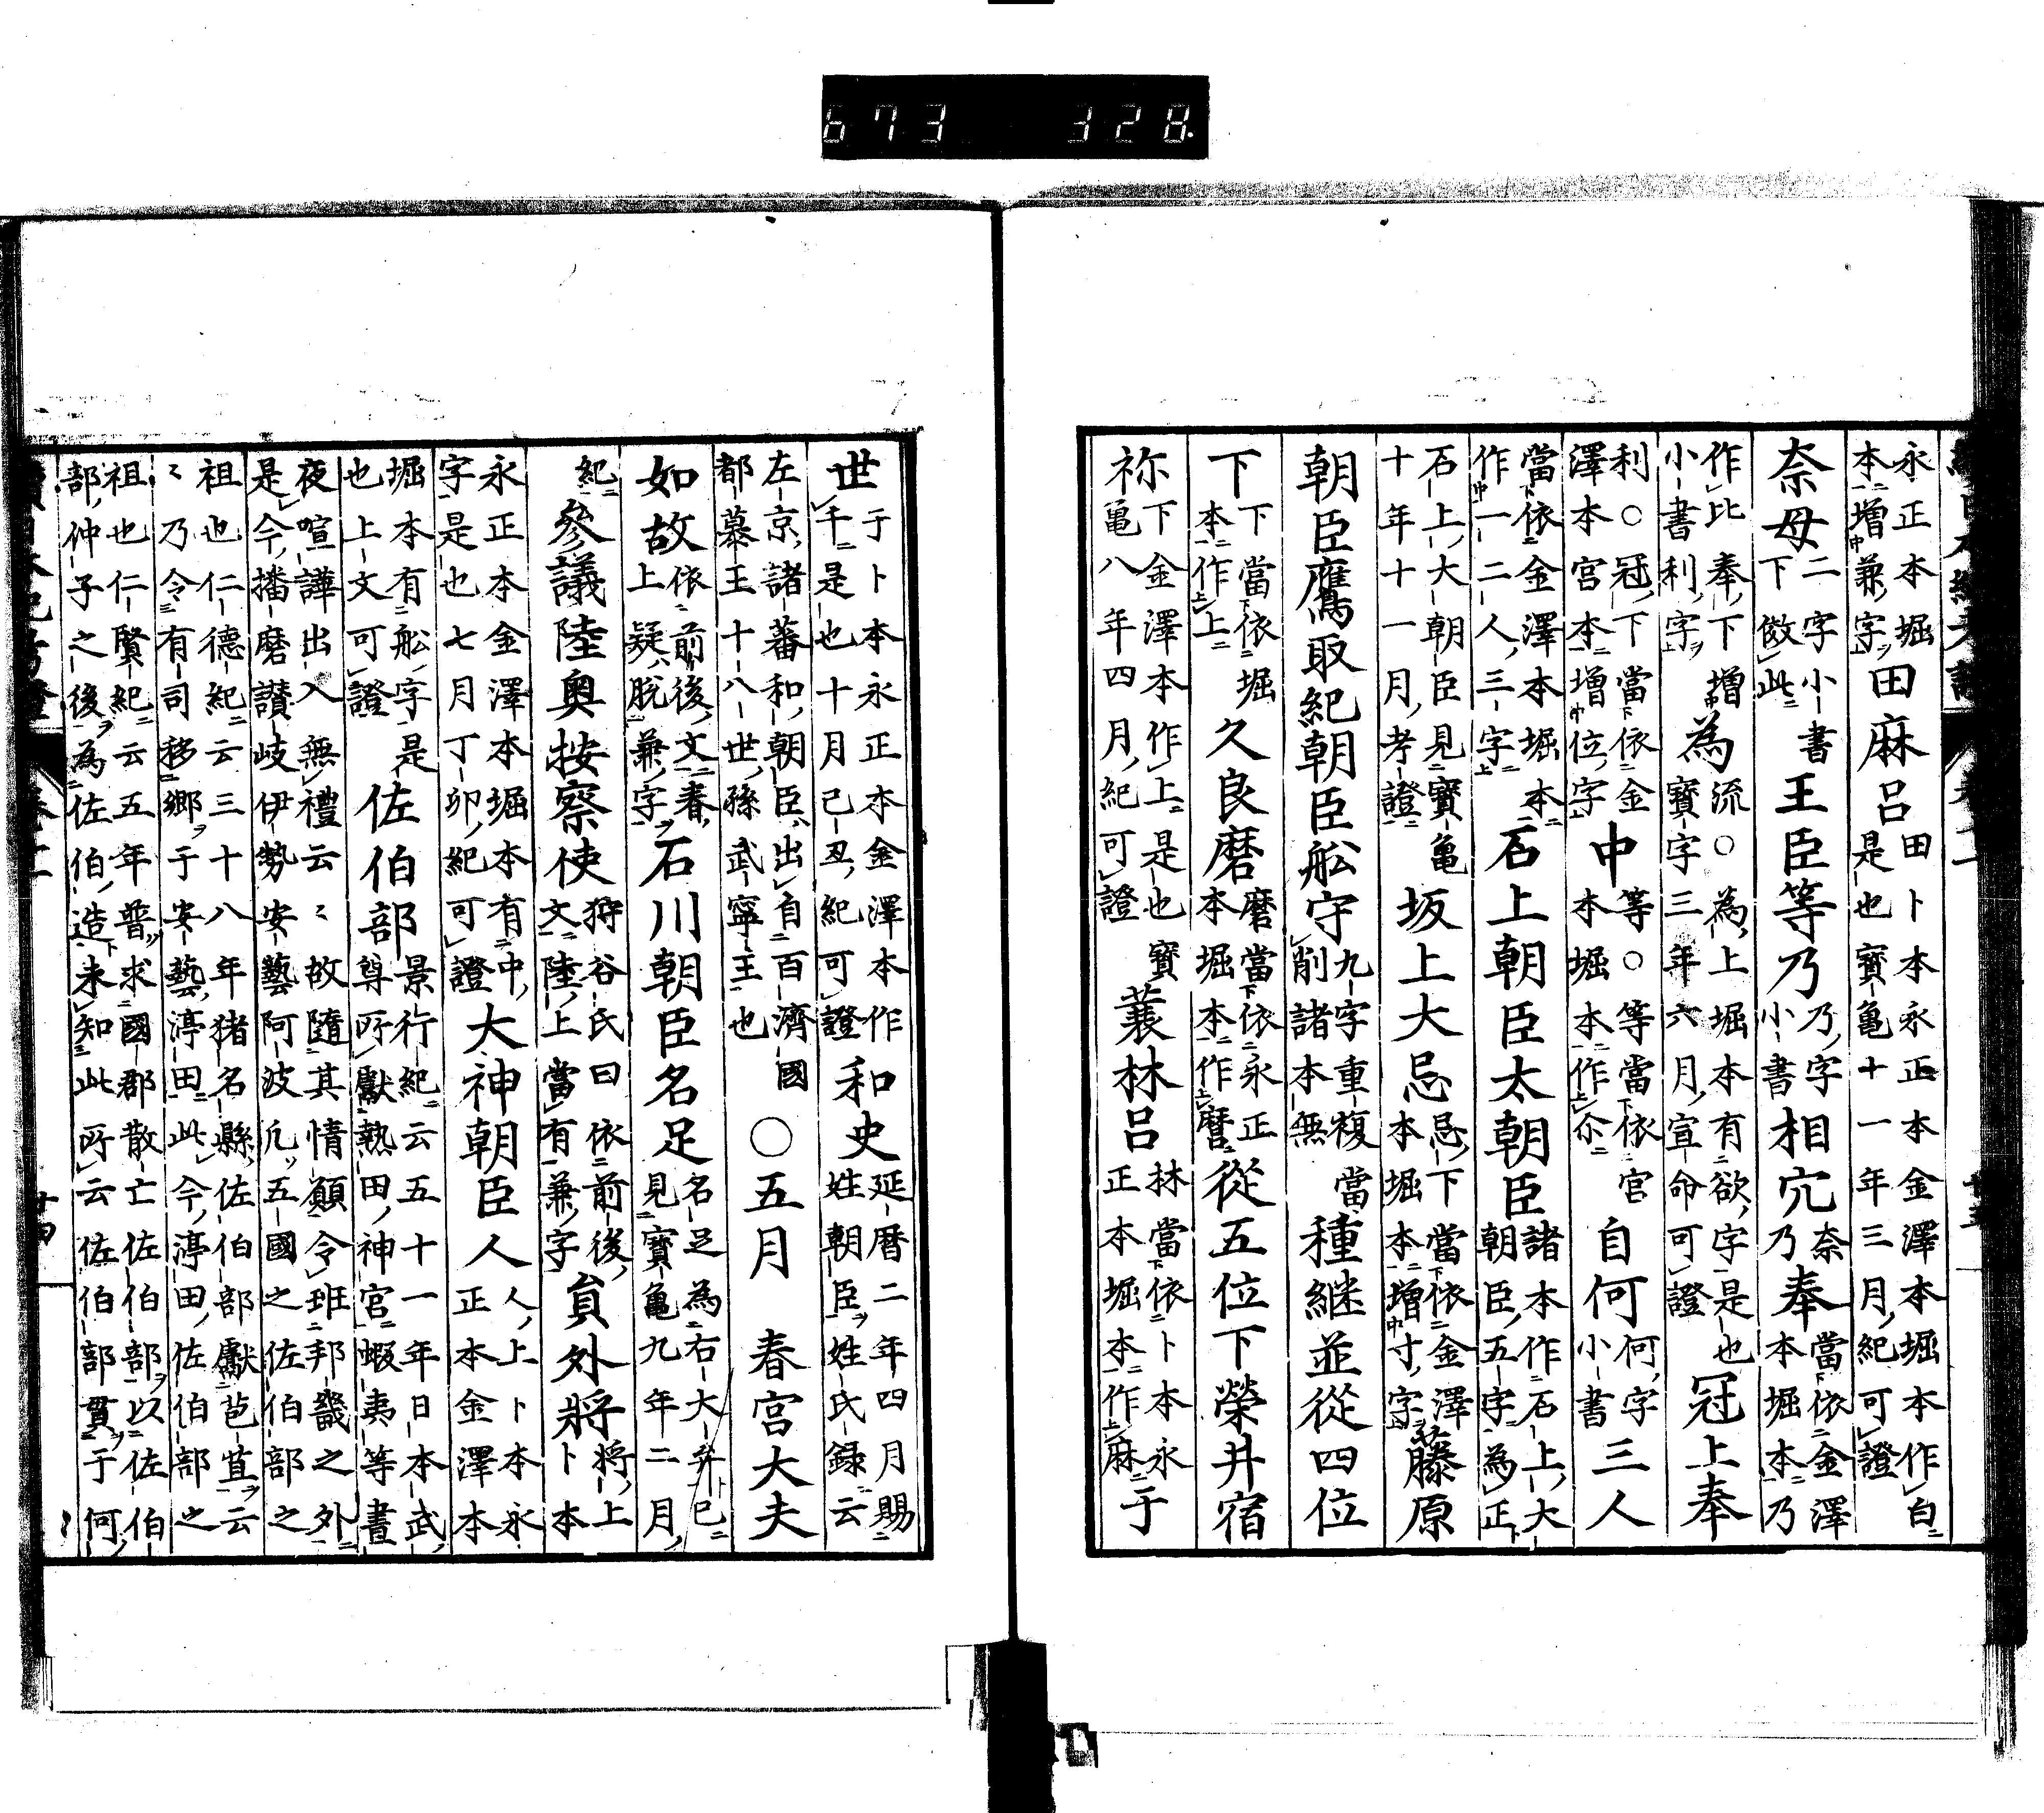 673 328.
永正本堀本増兼字田麻呂田卜本永正本金澤本堀本作白是也寶亀十一年三月紀可證
奈母二字小書下倣此王臣等乃乃字小書相穴奈乃奉當依金澤本堀本乃
作比奉下増小書利字為流○為上堀本有欲字是也寶字三年六月宣命可證冠上奉
利○冠下當依金澤本宮本増位字中等○等當依官本堀本作尒自何何字小書三人
當依金澤本堀本作一二人三字石上朝臣太朝臣諸本作石上大朝臣五字為正
石上大朝臣見寶亀十年十一月考證坂上大忌忌下當依金澤本堀本増寸字藤原
朝臣鷹取紀朝臣舩守九字重複當削諸本無種継並從四位
下下當依堀本作上久良磨磨當依永正本堀本作麿從五位下榮井宿
祢下金澤本作上是也寶亀八年四月紀可證蓑林呂林當依卜本永正本堀本作麻于
世于卜本永正本金澤本作千是也十月己丑紀可證和史延暦二年四月賜姓朝臣姓氏録云
左京諸蕃和朝臣出自百濟國都慕王十八世孫武寧王也○五月春宮大夫
如故依前後文春上疑脱兼字石川朝臣名足名足為右大弁已見寶亀九年二月
紀參議陸奥按察使狩谷氏曰依前後文陸上當有兼字員外将将上卜本
永正本金澤本堀本有中字是也七月丁卯紀可證大神朝臣人人上卜本永正本金澤本
堀本有舩字是也上文可證佐伯部景行紀云五十一年日本武尊所獻熱田神宮蝦夷等晝
夜喧譁出入無禮云〻故隨其情願令班邦畿之外是今播磨讃岐伊勢安藝阿波凢五國之佐伯部之
祖也仁德紀云三十八年猪名縣佐伯部獻苞苴云〻乃令有司移郷于安藝渟田此今渟田佐伯部之
祖也仁賢紀云五年普求國郡散亡佐伯部以佐伯部仲子之後為佐伯造未知此所云佐伯部貫于何